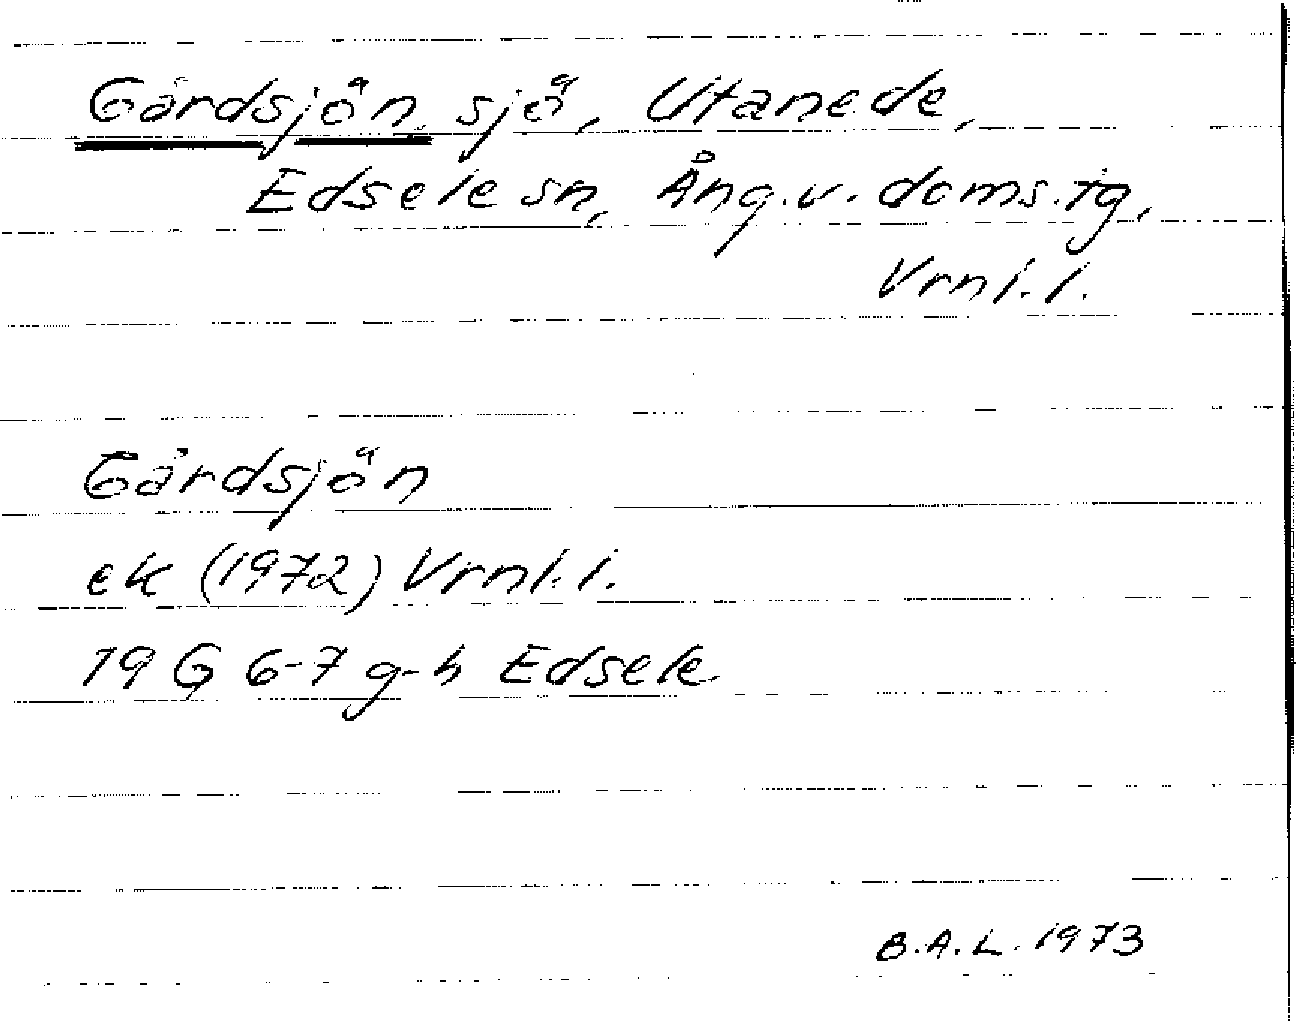 Gårdsjön, sjö, Utanede,
Edsele sn, Ång.v. doms.tg,
Vrnl.l.
Gårdsjön
ek (1972) Vrnl.l.
19 G 6-7 g-h Edsele
B.A.L. 1973